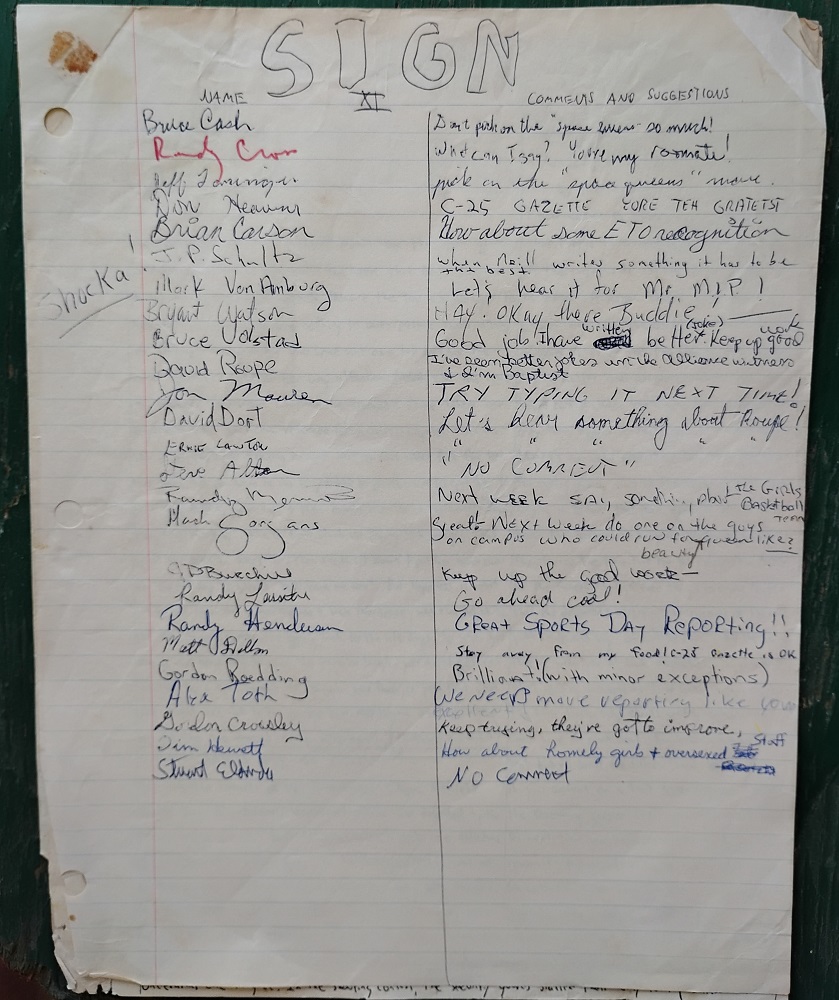 SIGN
XI
NAME COMMENTS AND SUGGESTIONS
Bruce Cash Don't pick on the "space queens" so much!
Randy Crow What can I say? You're my roomate!
Jeff pick on the "space queens" more.
Don Heavin C-25 GAZETTE YORE TEH GRATETST
Brian Carson How about some ETO recognition
J.P. Schultz when Neill writes something it has to be
the best.
Shocka!
Mark Van Amburg Let's hear it for Mr. M.I.P.!
Bryant Watson HAY. OKay there Buddie!
Bruce Volstad Good job! I have written better. (joke) Keep up good work
David Roupe I've seen better jokes in the Alliance witness
& I'm Baptist
Jon Mauren TRY TYPING IT NEXT TIME!
David Dort Let's hear something about Roupe!
ERNIE LAWTON " " " " "
"NO COMMENT"
Next week say something about the Girls
Basketball Team
Mach Gorgans Great! Next week do one on the guys
on campus who could run for beauty queen like?
Keep up the good work—
Randy Go ahead cool!
Randy Henderson GREAT SPORTS DAY REPORTING!!
Matt Stay away from my food! C-25 Gazette is OK
Gordon Boedding Brilliant! (with minor exceptions)
Alex Toth We need more reporting like
Gordon Crowley Keep trying, they've got to improve,
Jim Hewett How about homely girls + oversexed Staff
Stuart No Comment